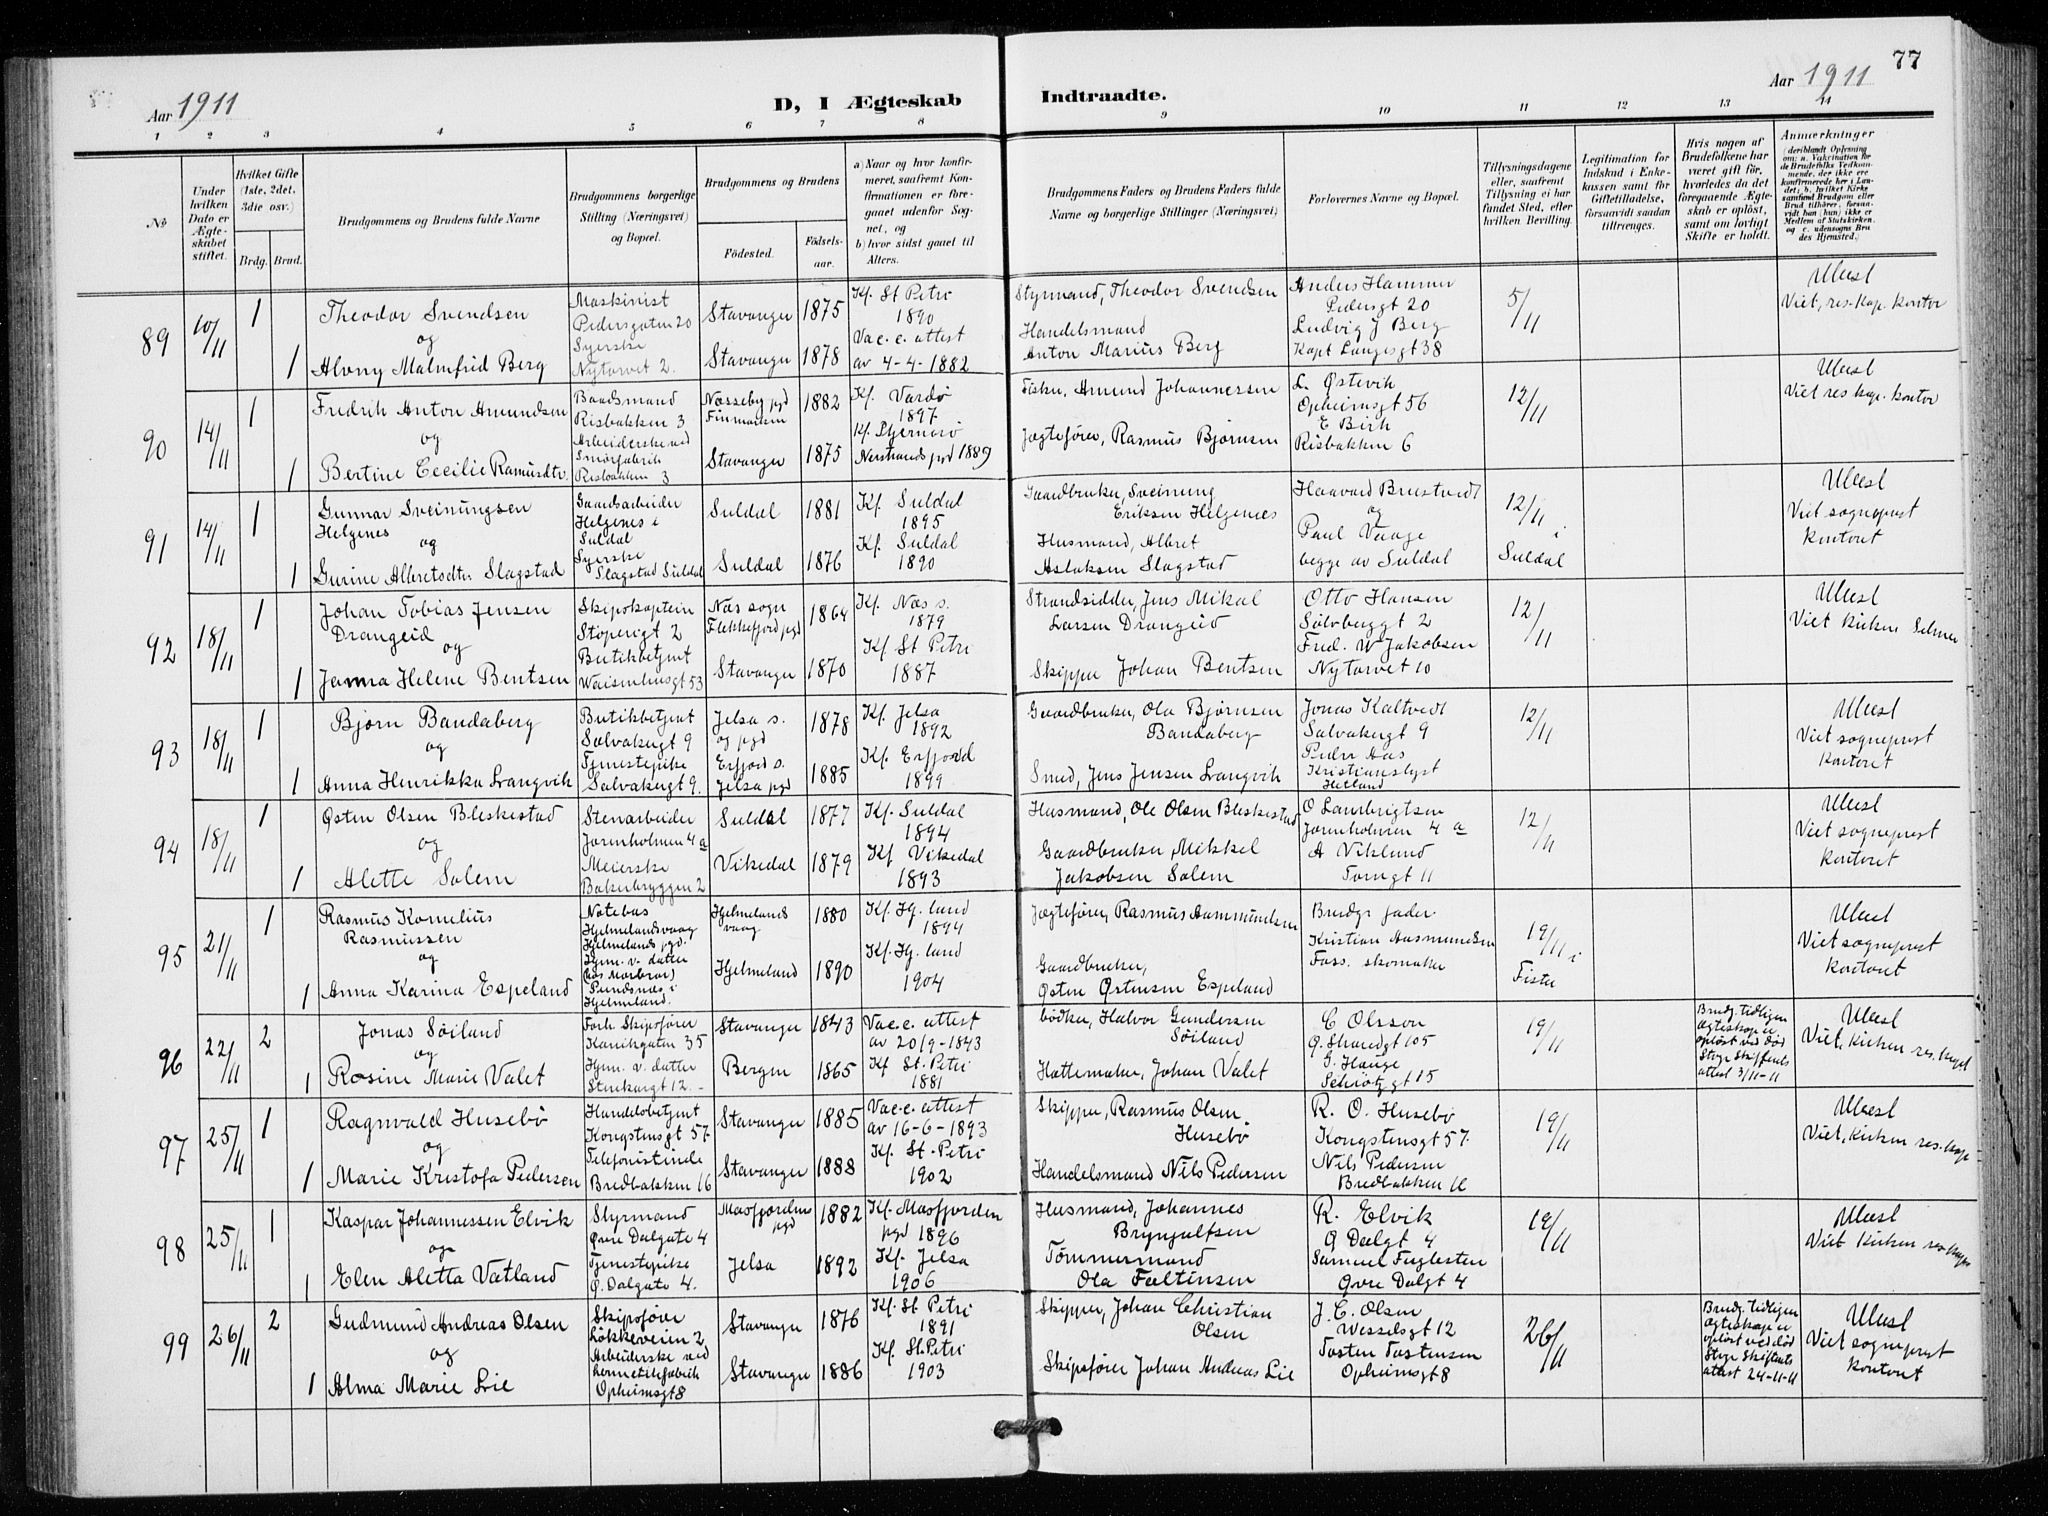 77
Aar 1911
D, I Ægteskab Indtraadte.
Aar 1911
1 2 3 4 5 6 7 8 9 10 11 12 13 14
No
Under hvilken Dato er Ægteskabet stiftet.
Hvilket Gifte (1ste, 2det, 3die osv.)
Brdg. Brud.
Brudgommens og Brudens fulde Navne
Brudgommens borgerlige Stilling (Næringsvei) og Bopæl.
Brudgommens og Brudens
Fødested. Fødselsaar.
a) Naar og hvor konfirmeret, saafremt Konfirmationen er foregaaet udenfor Sognet, og
b) hvor sidst gaaet til Alters.
Brudgommens Faders og Brudens Faders fulde Navne og borgerlige Stillinger (Næringsvei)
Forlovernes Navne og Bopæl.
Tillysningsdagene eller, saafremt Tillysning ei har fundet Sted, efter hvilken Bevilling.
Legitimation for Indskud i Enkekassen samt for Giftetilladelse, forsaavidt saadan tiltrænges.
Hvis nogen af Brudefolkene har været gift før, hvorledes da det foregaaende Ægteskab er opløst, samt om lovligt Skifte er holdt.
Anmerkninger (deriblandt Oplysning om: a. Vaccination for de Brudefolks Vedkommende, der ikke ere konfirmerede her i Landet; b. hvilket Kirkesamfund Brudgom eller Brud tilhører, forsaavidt han (hun) ikke er Medlem af Statskirken, og c. udensogns Brudes Hjemsted.)
89 10/11 1 1
Theodor Svendsen
og
Alvny Malmfrid Berg
Maskinist
Pedersgaten 20
Syerske
Nytorvet 2.
Stavanger 1875
Stavanger 1878
Kf. St Petri
1890
Vac.c. attest
av 4-4-1882
Styrmand, Theodor Svendsen
Handelsmand
Anton Marius Berg
Anders Hammer
Pedersgt 20
Ludvig J Berg
Kapt Langesgt 38
5/11
Ulæst
Viet, res. kap. kontor
90 14/11 1 1
Fredrik Anton Amundsen
og
Bertine Cecilie Rasmusdtr.
Baadsmand
Risbakken 3
Arbeiderske ved
Smørfabrik
Risbakken 3
Næsseby pgd
Finmarken 1882
Stavanger 1875
Kf. Vardø
1897.
Kf. Stjernerø
Nerstrands pgd 1889
Fisker, Amund Johannessen
Jægtefører, Rasmus Bjørnsen
L. Østevik
Opheimsgt 56
E Birk
Risbakken 6
12/11
Ulæst
Viet res. kap. kontor
91 14/11 1 1
Gunnar Sveinungsen
Helgenes
og
Gurine Albretsdtr. Slagstad
Gaardsarbeider
Helgenes i
Suldal
Syerske
Slagstad Suldal
Suldal 1881
Suldal 1876
Kf. Suldal
1895
Kf. Suldal
1890
Gaardbruker, Sveinung
Eriksen Helgenes
Husmand, Albret
Aslaksen Slagstad
Haavard Brustveit
og
Paul Vaage
begge av Suldal
12/11 i
Suldal
Ulæst
Viet sogneprest
kontoret
92 18/11 1 1
Johan Tobias Jensen
Drangeid
og
Janna Helene Bentsen
Skipskaptein
Støperigt 2
Butikbetjent
Waisenhusgt 53
Næs sogn
Flekkefjord pgd 1864
Stavanger 1870
Kf. Næs s.
1879
Kf. St Petri
1887
Strandsidder, Jens Mikal
Larsen Drangeid
Skipper Johan Bentsen
Otto Hansen
Sølvberggt 2
Fred. W Jakobsen
Nytorvet 10
12/11
Ulæst
Viet kirken Selmer
93 18/11 1 1
Bjørn Bandaberg
og
Anna Henrikka Langvik
Butikbetjent
Salvakergt 9
Tjenestepike
Salvakergt 9.
Jelsa s.
og pgd 1878
Erfjord s.
Jelsa pgd 1885
Kf. Jelsa
1892
Kf. Erfjord
1899
Gaardbruker, Ola Bjørnsen
Bandaberg
Smed, Jens Jensen Langvik
Jonas Kaltvedt
Salvakergt 9
Peder Aas
Kristianslyst
Hetland
12/11
Ulæst
Viet sogneprest
kontoret
94 18/11 1 1
Østen Olsen Bleskestad
og
Alette Salem
Stenarbeider
Jorenholmen 4 a
Meierske
Bakerbryggen 2
Suldal 1877
Vikedal 1879
Kf. Suldal
1894
Kf Vikedal
1893
Husmand, Ole Olsen Bleskestad
Gaardbruker, Mikkel
Jakobsen Salem
O Lambrigtsen
Jorenholmen 4 a
A Viklund
Torngt 11
12/11
Ulæst
Viet sogneprest
kontoret
95 21/11 1 1
Rasmus Kornelius
Rasmussen
og
Anna Karina Espeland
Notebas
Hjelmelandsvaag
Hjelmelands pgd.
Hjem. v. datter
(hos Morbror)
Pundsnæs i
Hjelmeland.
Hjelmelands
vaag 1880
Hjelmeland 1890
Kf. Hj. land
1894
Kf. Hj. land
1904
Jægtefører, Rasmus Aasmundsen
Gaardbruker,
Østen Østensen Espeland
Brudgs fader.
Kristian Aasmundsen
Foss. skomaker
19/11 i
Fister
Ulæst
Viet sogneprest
kontoret
96 22/11 2 1
Jonas Søiland
og
Rosine Marie Valet
Forh Skipsfører
Kanikgaten 35
Hjem. v. datter
Stenkargt 12.
Stavanger 1843
Bergen 1865
Vac.c. attest
av 20/9-1843
Kf St. Petri
1881
bødker, Halvor Gundersen
Søiland
Hattemaker, Johan Valet
C Olsson
Ø. Strandgt 105
G. Hauge
Schiøtzgt 15
19/11
Brudg. tidligere
ægteskap er
opløst ved død
Stvgr Skifterets
attest 3/11-11
Ulæst
Viet, kirken res. kapel
97 25/11 1 1
Ragnvald Husebø
og
Marie Kristofa Pedersen
Handelsbetjent
Kongstensgt 57.
Telefonistinde
Bredbakken 16
Stavanger 1885
Stavanger 1888
Vac.c. attest
av 16-6-1893
Kf. St. Petri
1902
Skipper, Rasmus Olsen
Husebø
Handelsmand Nils Pedersen
R. O. Husebø
Kongstensgt 57.
Nils Pedersen
Bredbakken 16
19/11
Ulæst
Viet, kirken res. kap
98 25/11 1 1
Kaspar Johannessen Elvik
og
Elen Aletta Vatland
Styrmand
Øvre Dalgate 4
Tjenestepike
Ø. Dalgate 4.
Masfjorden
pgd 1882
Jelsa 1892
Kf. Masfjorden
pgd 1896
Kf. Jelsa
1906
Husmand, Johannes
Brynjulfsen
Tømmermand
Ola Faltinsen
R. Elvik
Ø Dalgt 4
Samuel Fuglesten
Øvre Dalgt 4
19/11
Ulæst
Viet kirken res. kap
99 26/11 2 1
Gudmund Andreas Olsen
og
Alma Marie Lie
Skipsfører
Løkkeveien 2
Arbeiderske ved
Hermetikfabrik
Opheimsgt 8
Stavanger 1876
Stavanger 1886
Kf. St Petri
1891
Kf. St. Petri
1903
Skipper, Johan Christian
Olsen
Skipsfører Johan Andreas Lie
J. C. Olsen
Wesselsgt 12
Tosten Tostensen
Opheimsgt 8
26/11
Brudg. tidligere
ægteskap er
opløst ved død
Stvgr Skifterets
attest 24-11-11
Ulæst
Viet sogneprest
kontoret